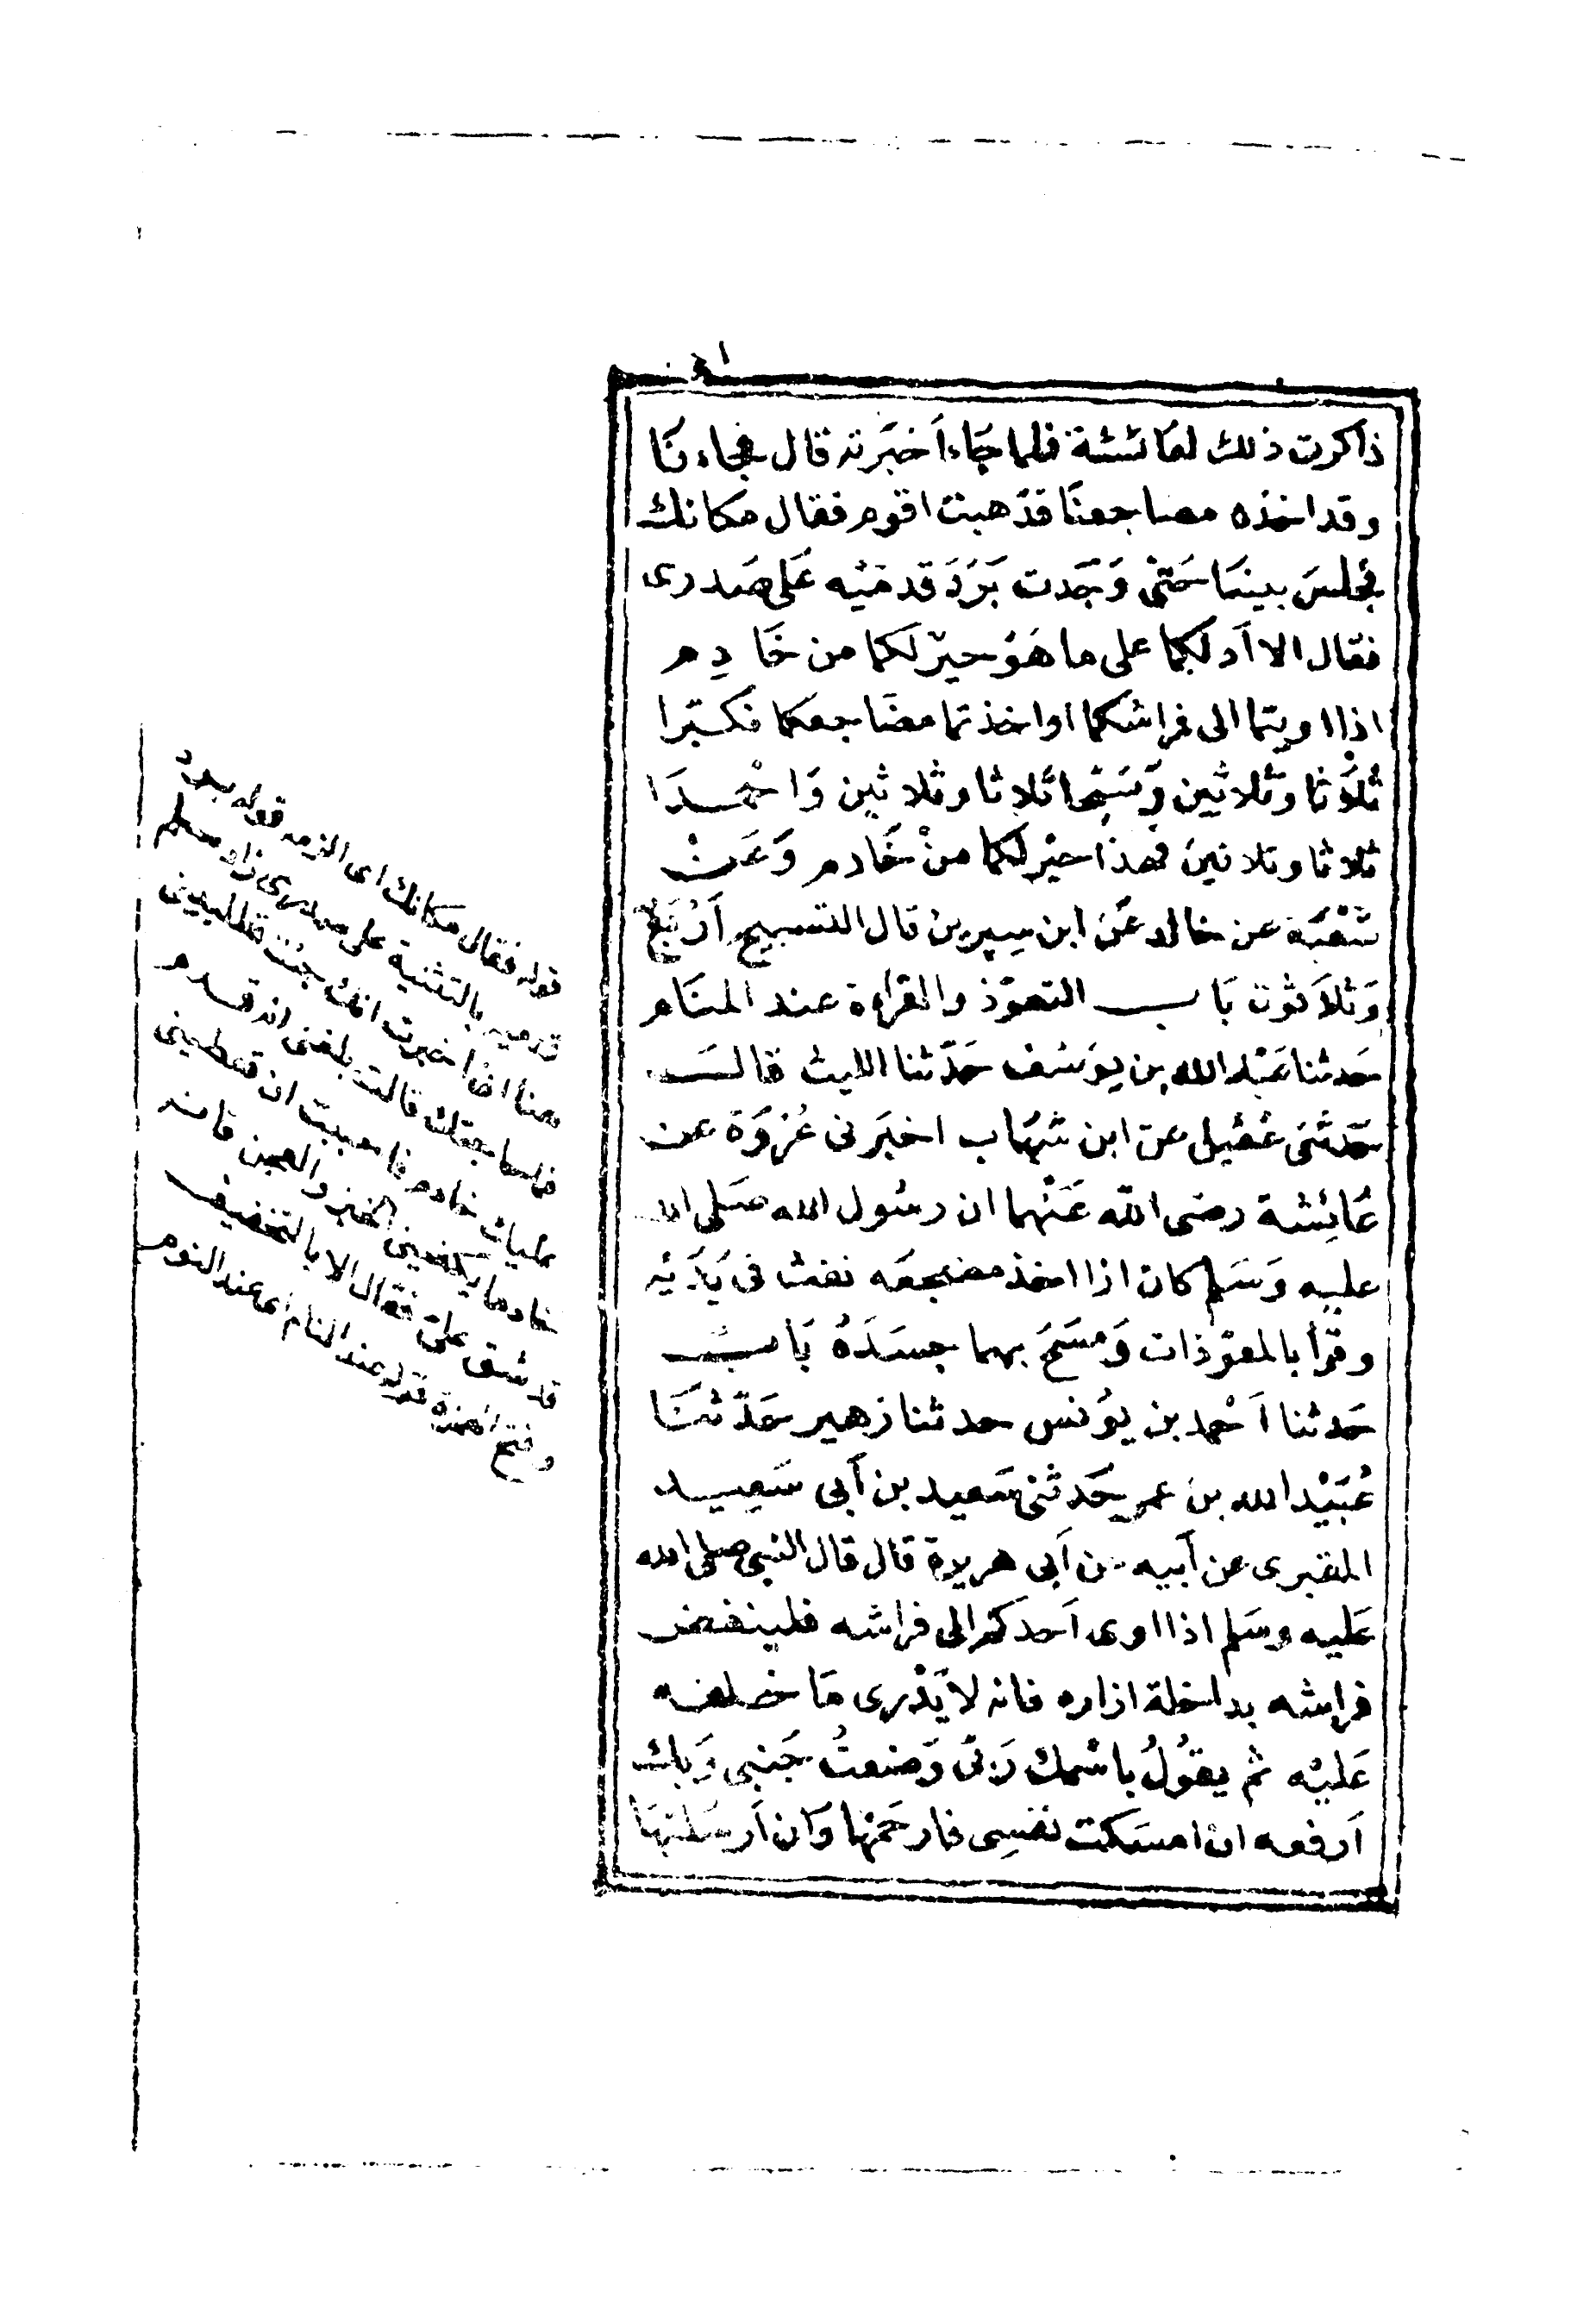 ذاكرت ذلك لعائشة فلما جَاء اَخبَرته قال فجاءنَا
وقد اخذه مضاجعنَا فذهبت اقوم فقال مكانك
فجلسَ بينهَا حَتىٰ وَجَدت بَرَدَ قدمَيْه عَلى صَدرى
فقال الا اَدلكما على ما هَوُ خيرٌ لكما من خَادِم
اذا اويتما الى فراشكما او اخذتما مضَاجعكما فكبّرا
ثلاَثا وثلاثين وَسَبّحا ثلاثا وثلاثين وَاحْمدَا
ثلاثا وثلاثينَ فهذا خيْر لكما منْ خَادم وَعَنْ
شعْبَة عن خالد عَن ابن سِيرين قال التسبيح اَرْبَعٌ
وَثلاَثون بَاب التعوّذ والقراءة عند المنَام
حَدثنا عَبْد الله بن يوَسُف حَدّثنا الليث قالَ
حَدثنى عُقيْل عن ابن شهَاب اخبَرنى عُرْوَة عن
عَائِشة رضى الله عَنْهما ان رسُول الله صَلى الله
عليه وَسَلم كان اذا اخذ مضجعَه نفث فى يَدَيْه
وقرأ بالمعوّذات وَمسَحَ بهما جسَدَهُ بَابٌ
حَدثنا اَحْمد بن يوُنس حدثنا زهير حَدّثنَا
عُبَيْد الله بن عمر حَدثنى سَعيد بن اَبى سَعِيد
المقبرى عن اَبيه عن اَبى هريرة قال قال النبى صلى الله
عَليه وسَلم اذا اوى اَحدَكم الى فراشه فلينفض
فراشه بداخلة ازاره فانه لا يَدْرى مَا خلفه
عَليْه ثم يقوُلُ باسْمك رَبىّ وَضعتُ جَنبى وَبك
اَرفعه ان امسَكت نفسِى فارحَمْهَا وَان اَرسَلتهَا
قوله فقال مكانك اى الزمه قوله برد
قدميه بالتثنية على صدرى زاد مسلم
هنا انى اخبرت انك جئت تطلبينى
فما حاجتك قالت بلغنى انه قدم
عليك خادم فاحببت ان تعطينى
خادما يكفينى الخبز والعجن فانه
قد شق علىّ فقال الا بالتخفيف
وفتح الهمزة قوله عند المنام اى عند النوم